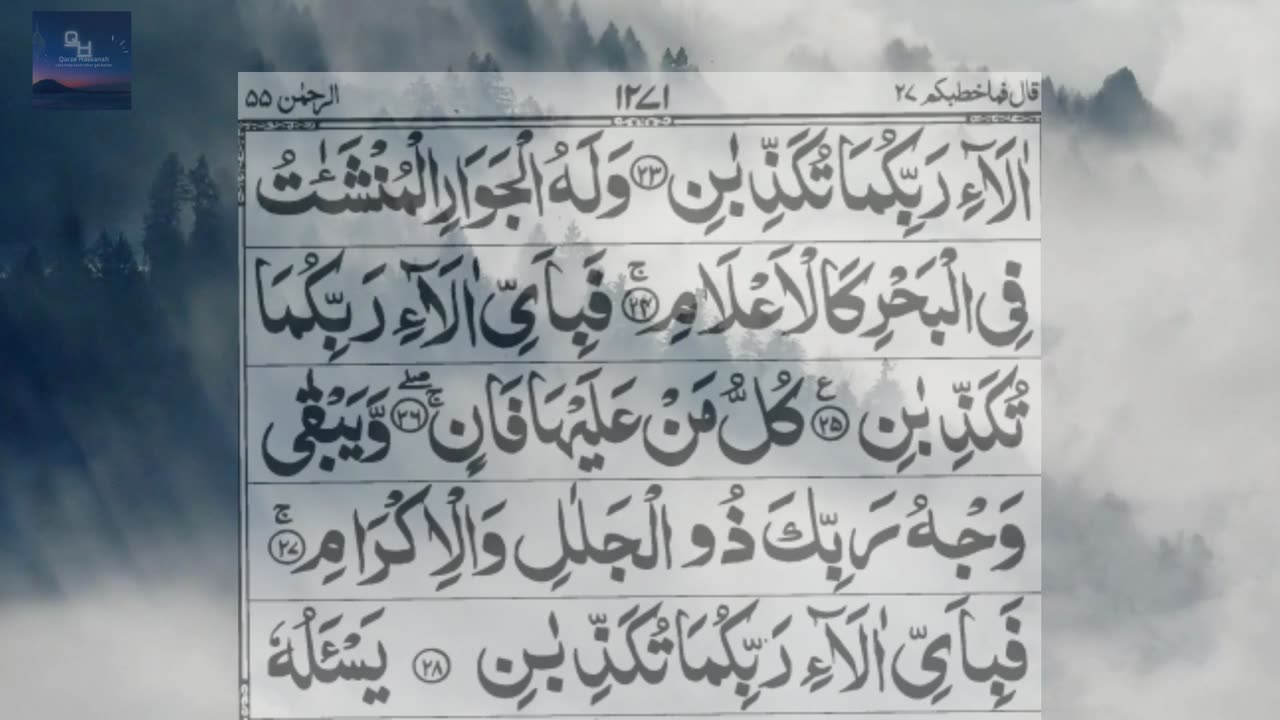 QH
Qarze Hassanah
قال فما خطبكم ٢٧ ١٢٧١ الرحمٰن ٥٥
اٰلَآءِ رَبِّكُمَا تُكَذِّبٰنِ ﴿٢٣﴾ وَلَهُ الْجَوَارِ الْمُنْشَئٰتُ
فِى الْبَحْرِ كَالْاَعْلَامِ ﴿٢٤﴾ۚ فَبِاَىِّ اٰلَآءِ رَبِّكُمَا
تُكَذِّبٰنِ ﴿٢٥﴾ع كُلُّ مَنْ عَلَيْهَا فَانٍ ۚ﴿٢٦﴾ۖ وَّيَبْقٰى
وَجْهُ رَبِّكَ ذُو الْجَلٰلِ وَالْاِكْرَامِ ﴿٢٧﴾ۚ
فَبِاَىِّ اٰلَآءِ رَبِّكُمَا تُكَذِّبٰنِ ﴿٢٨﴾ يَسْئَلُهٗ